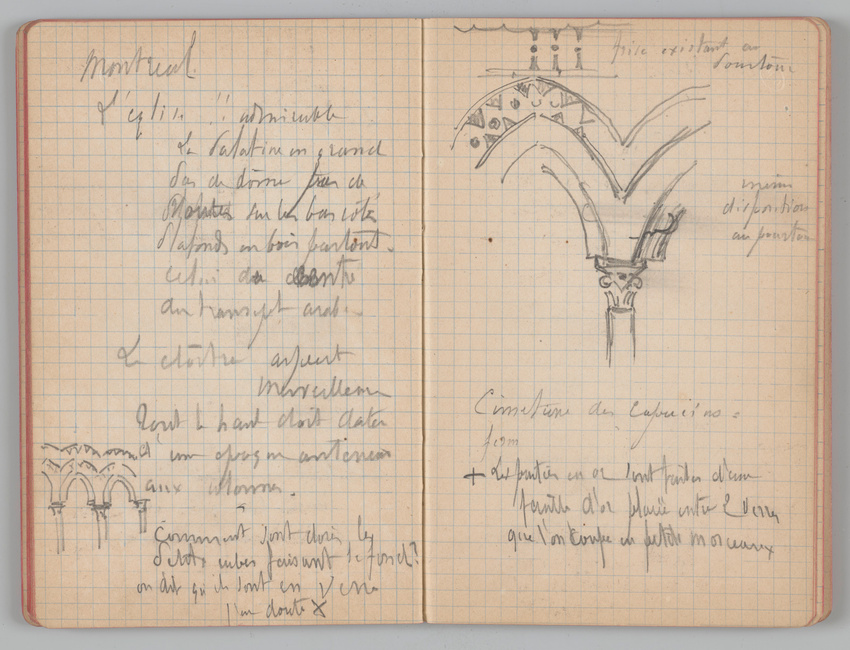 Montreal
L'église !! admirable
La Palatine en grand
Pas de dôme pas de
voutes sur les bas côté
Plafonds en bois partout.
celui du centre
du transept arabe
Le cloître aspect
merveilleux
Tout le haut doit dater
d'une époque antérieure
aux colonnes.
Comment sont dorés les
petits cubes faisant le fond?
on dit qu'ils sont en verre
j'en doute X
frise existant au
pourtour
même
disposition
au pourtour
Cimetière des Capucins =
+ Les parties en or sont faites d'une
feuille d'or placée entre 2 verres
que l'on coupe en petits morceaux